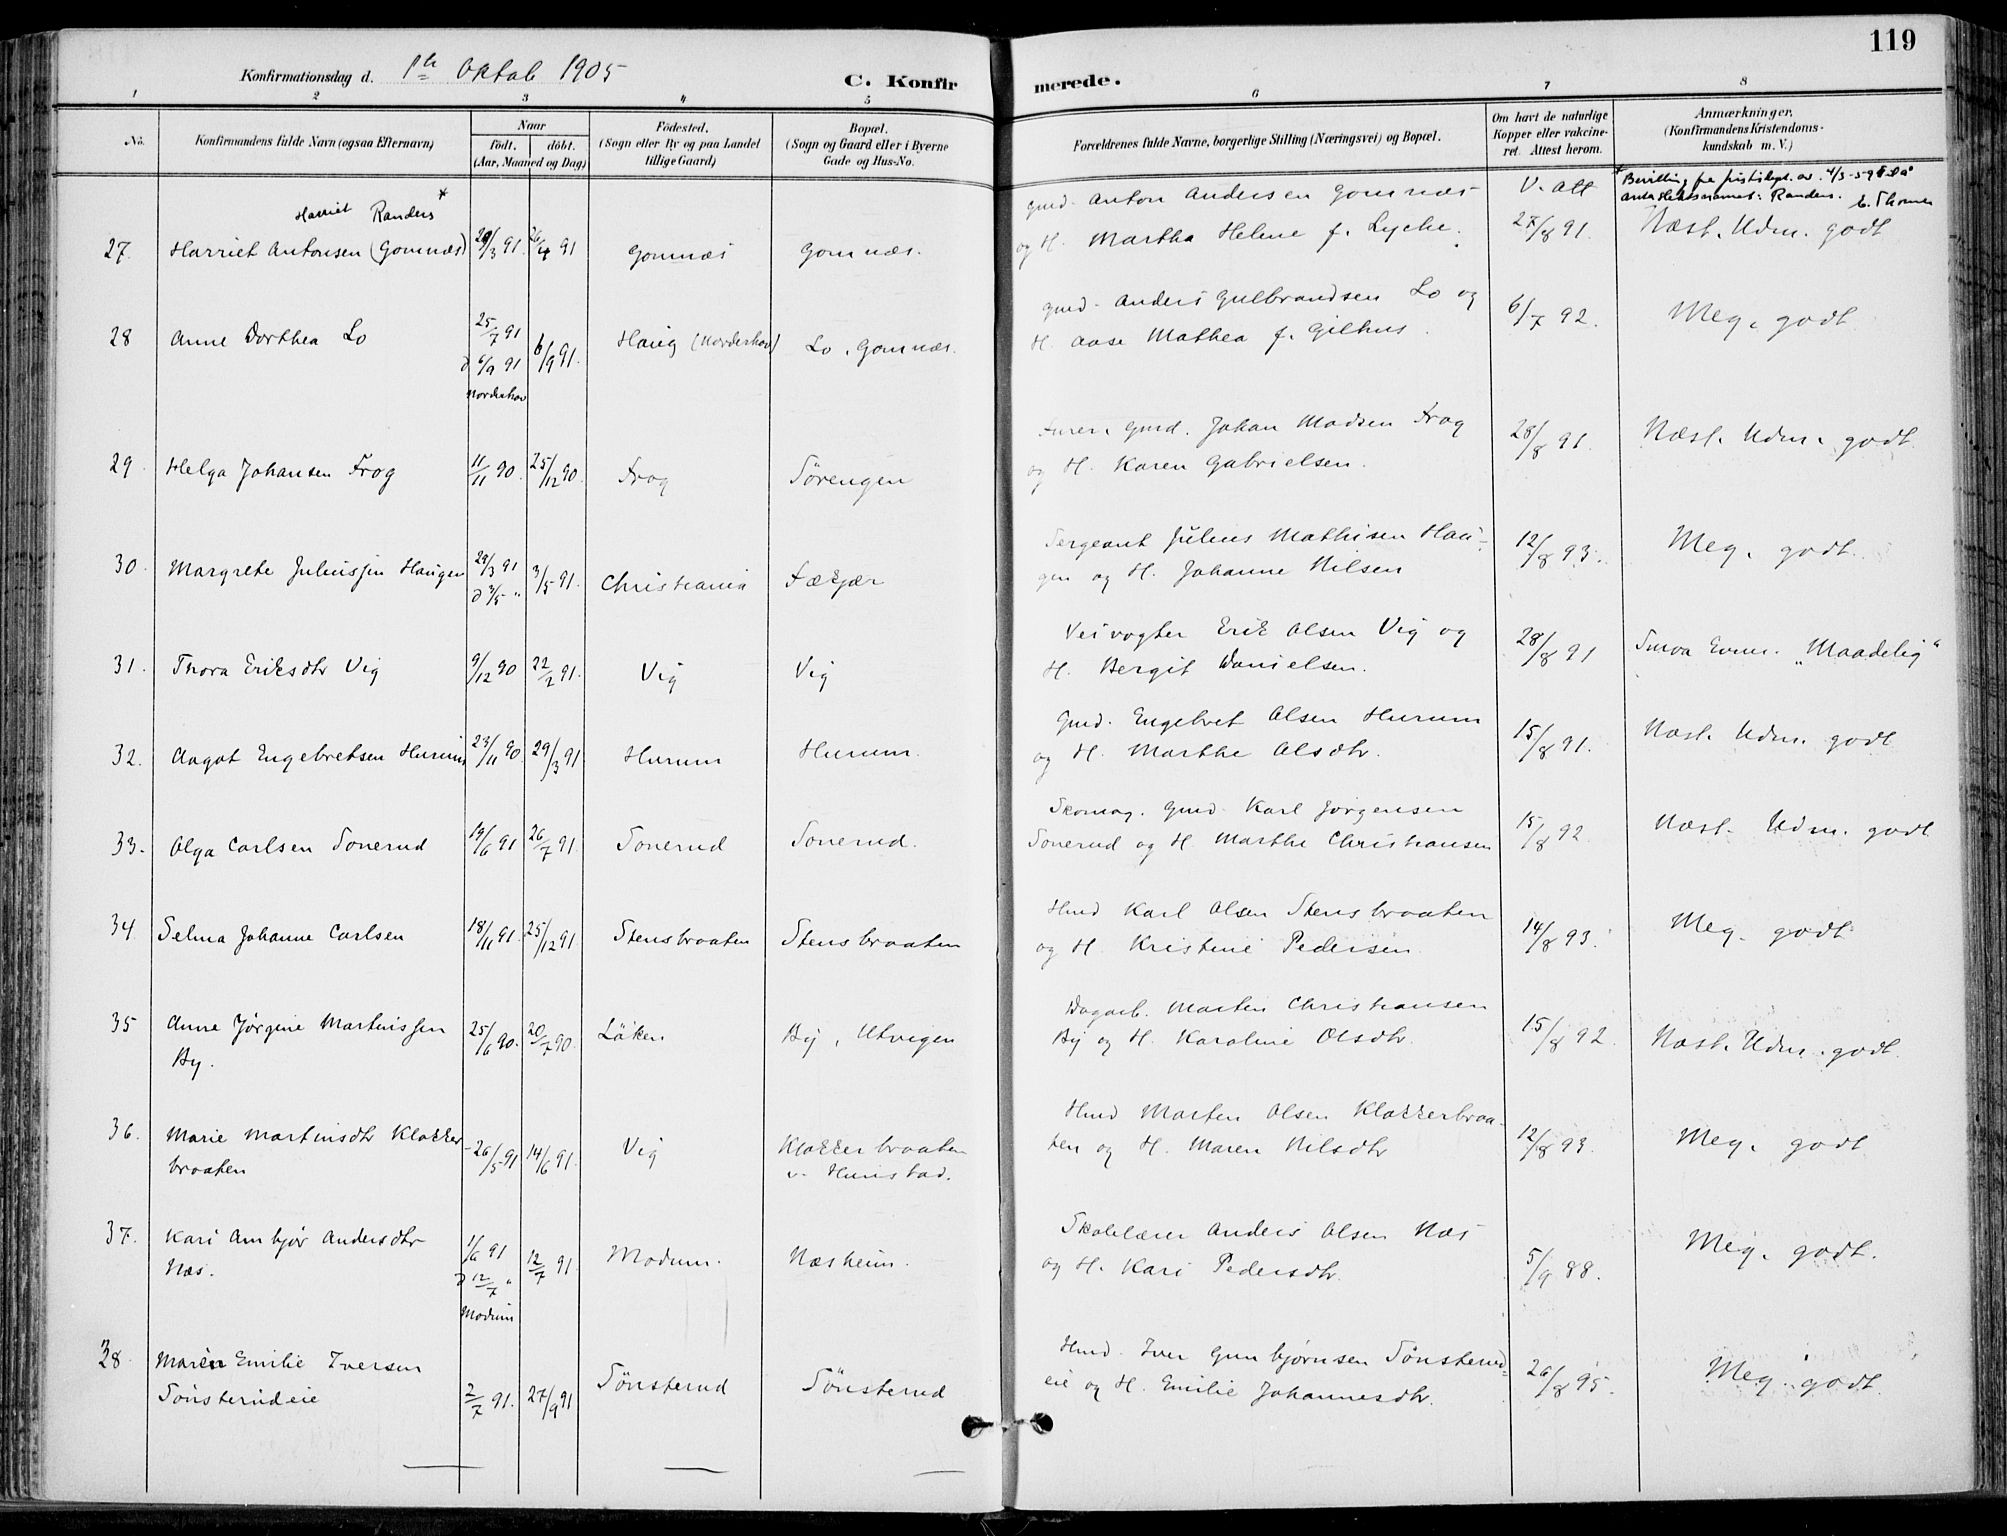 119
Konfirmationsdag d. 1ste Oktob 1905
C. Konfirmerede.
1 2 3 4 5 6 7 8
No.
Konfirmandens fulde Navn (ogsaa Efternavn)
Naar
födt. döbt.
(Aar, Maaned og Dag)
Födested.
(Sogn eller By og paa Landet
tillige Gaard)
Bopæl.
(Sogn og Gaard eller i Byerne
Gade og Hus-No.
Forældrenes fulde Navne, borgerlige Stilling (Næringsvei) og Bopæl.
Om havt de naturlige
Kopper eller vakcine-
ret. Attest herom.
Anmærkninger.
(Konfirmandens Kristendoms-
kundskab m. V.)
Harriet Randers *
27. Harriet Antonsen (Gomnæs) 29/3 91. 26/4 91 Gomnæs Gomnæs.
Gmd. Anton Andersen Gomnæs
og H. Martha Helene f. Lyche.
V. Att
27/8 91.
Næst. Udm. godt
28 Anne Dorthea Lo 25/7 91 d 6/9 91 Norderhov 6/9 91. Haug (Norderhov) Lo, Gomnæs.
Gmd. Anders Gulbrandsen Lo og
H. Aase Mathea f. Gilhus.
6/7 92.
Meg. godt
29 Helga Johansen Frog 11/11 90. 25/12 90. Frog Sørengen
Gmd. Johan Madsen Frog
og H. Karen Gabrielsen.
28/8 91.
Næst. Udm. godt
30. Margrete Juliussen Haugen 29/3 91 d 3/5 " 3/5 91. Christiania Fækjær
Sergeant Julius Mathisen Hau-
gen og H. Johanne Nilsen
12/8 93.
Meg. godt.
31. Thora Eriksdtr Vig 9/12 90 22/2 91. Vig Vig
Veivogter Erik Olsen Vig og
H. Bergit Danielsen.
28/8 91
Smaa Evner. „Maadelig"
32. Aagot Engebretsen Hurum 23/11 90 29/3 91 Hurum Hurum.
Gmd. Engebret Olsen Hurum
og H. Marthe Olsdtr.
15/8 91.
Næst. Udm. godt
33. Olga Carlsen Sonerud 19/6 91 26/7 91. Sonerud Sonerud.
Skomag. Gmd. Karl Jørgensen
Sonerud og H. Marthe Christiansen
15/8 92.
Næst. Udm. godt
34. Selma Johanne Carlsen 18/11 91. 25/12 91 Stensbraaten Stensbraaten
Hmd Karl Olsen Stensbraaten
og H. Kristine Pedersen.
14/8 93.
Meg. godt
35 Anne Jørgine Martinssen
By. 25/6 90. 20/7 90. Løken By, Utvigen
Dagarb. Martin Christiansen
By og H. Karoline Olsdtr.
15/8 92.
Næst. Udm. godt.
36. Marie Martinsdtr Klokker-
braaten 26/5 91 14/6 91. Vig Klokkerbraaten
v. Hunstad.
Hmd Morten Olsen Klokkerbraa-
ten og H. Maren Nilsdtr
12/8 93.
Meg. godt
37. Kari Ambjør Andersdtr
Næs. 1/6 91 d 12/7 " Modum 12/7 91 Modum. Næsheim.
Skolelærer Anders Olsen Næs
og H. Kari Pedersdtr.
5/9 88.
Meg. godt.
38. Maren Emilie Iversen
Sønsterudeie 2/7 91. 27/9 91 Sønsterud Sønsterud
Hmd. Iver Gunbjørnsen Sønsterud-
eie og H. Emilie Johannesdtr.
26/8 95.
Meg. godt.